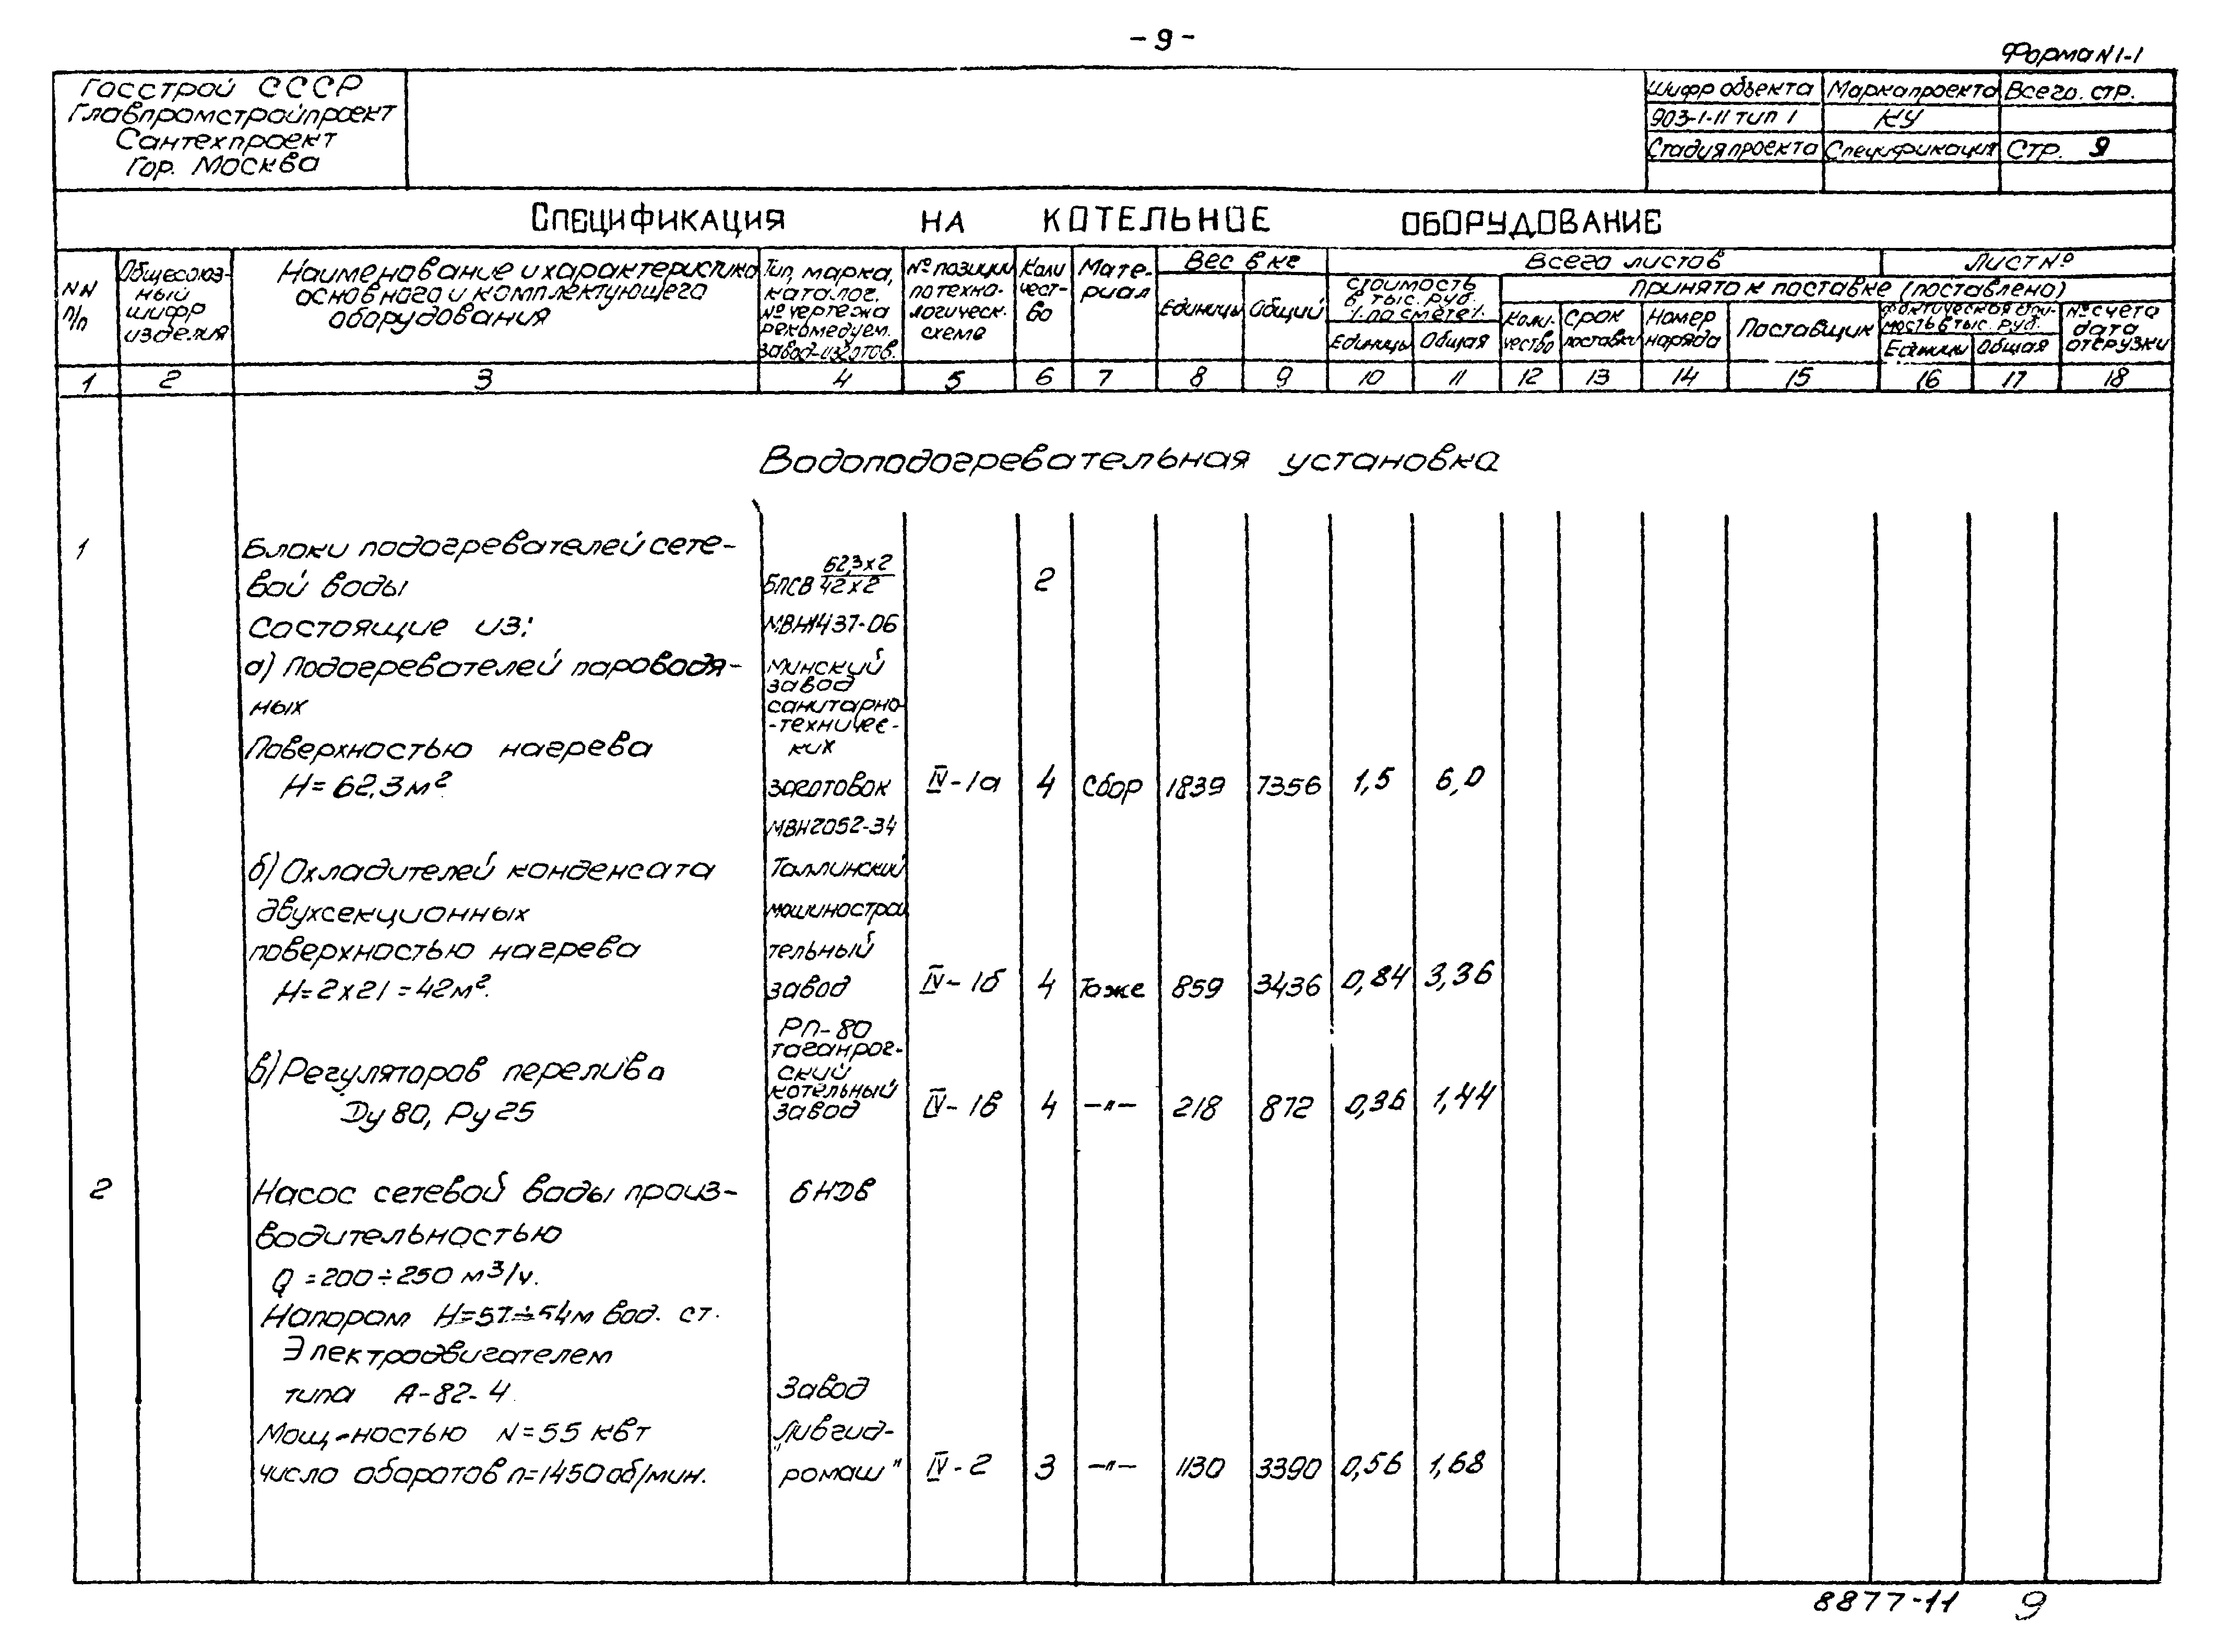 - 9 -
Форма N 1-1
Госстрой СССР
Главпромстройпроект
Сантехпроект
Гор. Москва
Шифр объекта Марка проекта Всего. стр.
903-1-11 тип 1 КУ
Стадия проекта Спецификация Стр. 9
Спецификация на котельное оборудование
NN п/п
Общесоюз-
ный
шифр
изделия
Наименование и характеристика
основного и комплектующего
оборудования
Тип, марка,
каталог.
№ чертежа
рекомедуем.
завод-изготов.
№ позиции
по техно-
логическ.
схеме
Коли
чест-
во
Мате-
риал
Вес в кг
Единицы Общий
Всего листов
Лист №
Стоимость
в тыс. руб.
/по смете/.
Единицы Общая
Принято к поставке (поставлено)
Коли-
чество
Срок
поставки
Номер
наряда
Поставщик
Фактическая стои-
мость в тыс. руб.
Единицы Общая
№ счета
дата
отгрузки
1 2 3 4 5 6 7 8 9 10 11 12 13 14 15 16 17 18
Водоподогревательная установка
1 Блоки подогревателей сете-
вой воды БПСВ 62,3х2/42х2 2
Состоящие из: МВН1437-06
а) Подогревателей пароводя-
ных
Минский
завод
санитарно-
-техничес-
ких
Поверхностью нагрева
H=62.3м² заготовок IV-1а 4 Сбор 1839 7356 1,5 6,0
МВН2052-34
б) Охладителей конденсата Таллинский
двухсекционных машинострои
поверхностью нагрева тельный
H=2х21=42м². завод IV-1б 4 Тоже 859 3436 0,84 3,36
РП-80
таганрог-
ский
котельный
завод
в) Регуляторов перелива
Ду 80, Ру 25 IV-1в 4 -"- 218 872 0,36 1,44
2 Насос сетевой воды произ- 6НДВ
водительностью
Q =200÷250 м³/ч.
Напором H=57÷54м вод. ст.
Электродвигателем
типа А-82-4. Завод
Мощ-ностью N=55 квт „Ливгид-
число оборотов n=1450об/мин. ромаш" IV-2 3 -"- 1130 3390 0,56 1,68
8877-11 9